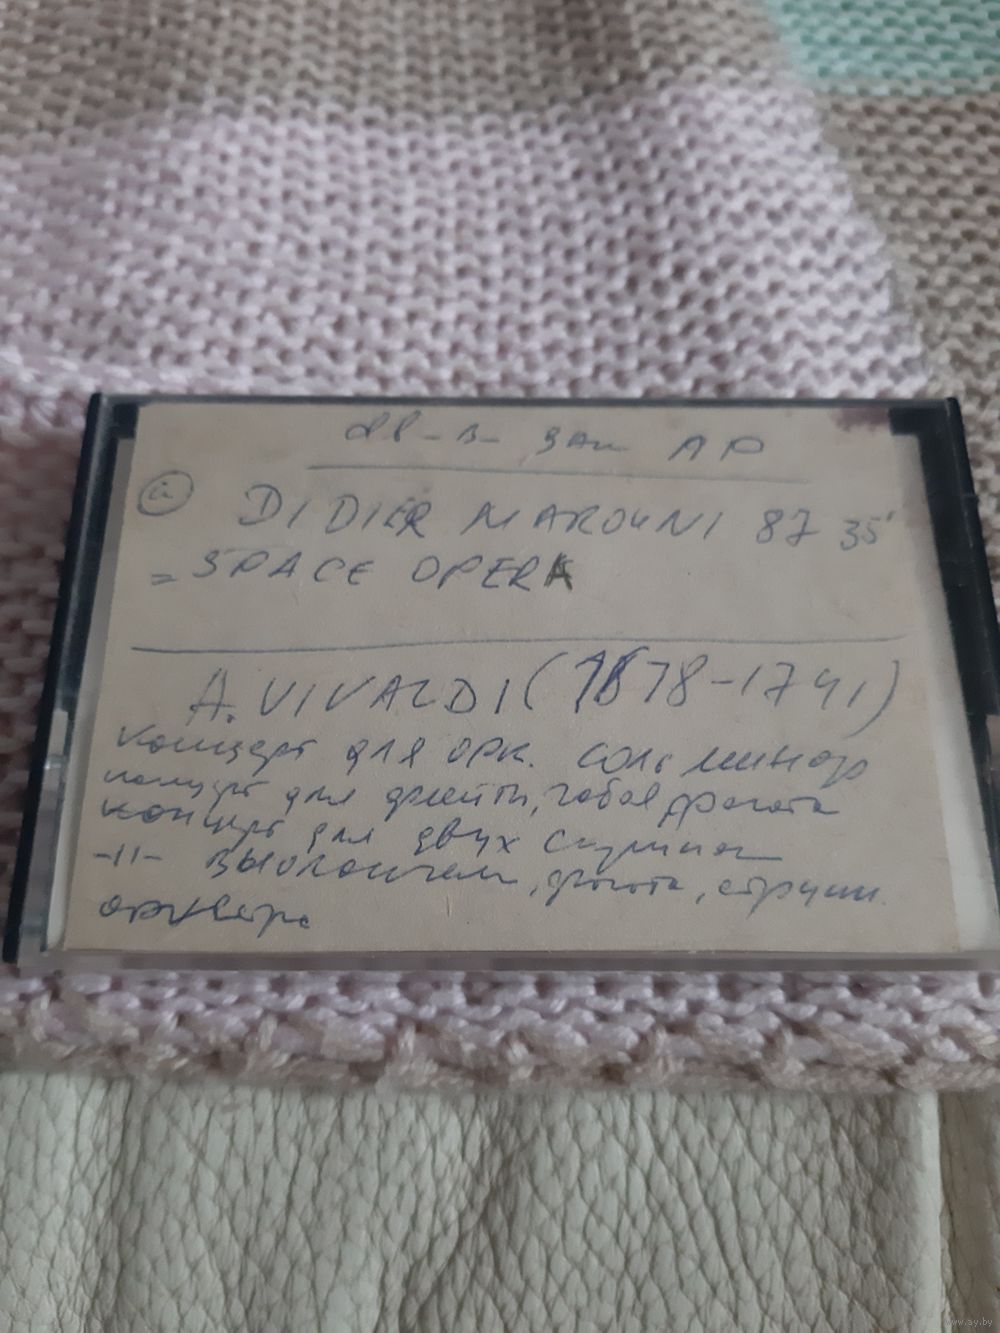 АР
DIDIER MAROUNI 87 35'
= SPACE OPERA
A. VIVALDI (1678-1741)
концерт для орк. соль минор
концерт для флейты, гобоя, фагота
концерт для двух скрипок
-11- виолончели, фагота, струнн.
оркестра
www.ay.by